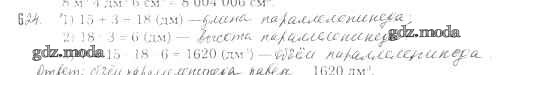 8 м³ 4 дм³ 6 см³ = 8 004 006 см³.
624. 1) 15 + 3 = 18 (дм) — длина параллелепипеда;
2) 18 : 3 = 6 (дм) — высота параллелепипеда
gdz.moda
gdz.moda 15 · 18 · 6 = 1620 (дм³) — объём параллелепипеда.
Ответ: объём параллелепипеда равен 1620 дм³.